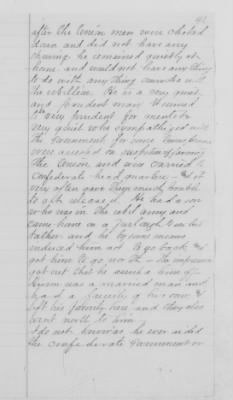 after the Union men were choked
down and did not have any
chance he remained quietly at
home and would not have any thing
to do with any thing connected with
the rebellion. He is a very quiet
and prudent man & seemed
very prudent for
very quiet who sympathized with
the Government for some
were accused or suspicion of favoring
the Union and was carried to
Confederate head quarters -
very often gave them much trouble
to get released. He had a son
who was in the rebel army and
came home on a furlough & on his
father and
induced him not to go back &
got him to go north - The impression
got out that he assisted him off.
was a married man and
had a family of his own &
left his family here and they also
went north to him.
I do not know as he ever aided
the confederate Government or